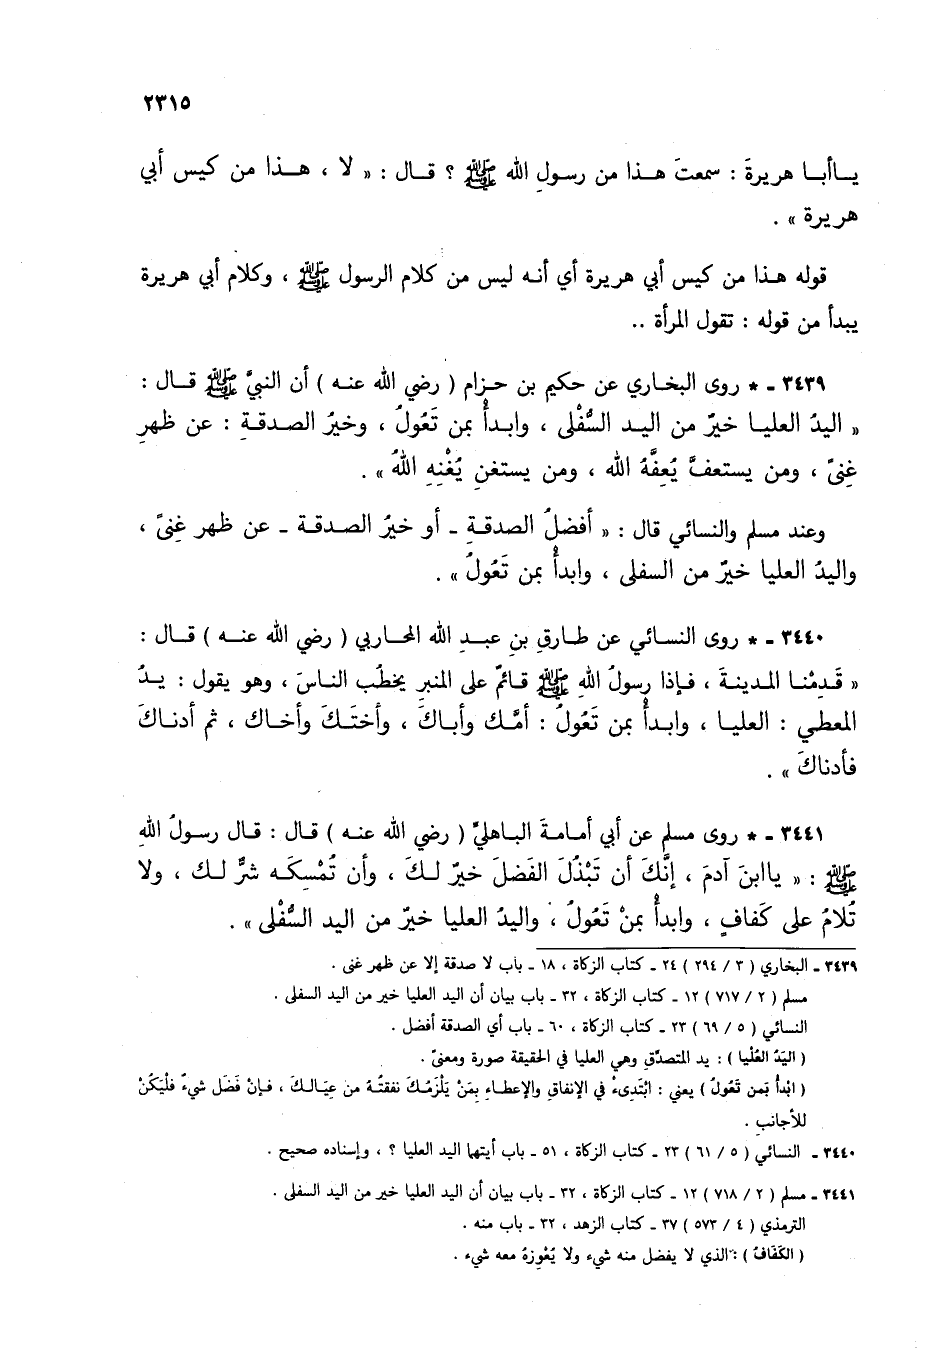 ٢٣١٥
يـاأبـا هريرةَ : سمعتَ هـذا من رسولِ الله ﷺ ؟ قـال : « لا ، هـذا من كيس أبي
هريرة » .
قوله هـذا من كيس أبي هريرة أي أنـه ليس من كلام الرسول ﷺ ، وكلام أبي هريرة
يبدأ من قوله : تقول المرأة ..
٣٤٣٩ ـ * روى البخـاري عن حكيم بن حـزام ( رضي الله عنـه ) أن النبيَّ ﷺ قـال :
« اليدُ العليـا خيرٌ من اليـد السُّفْلى ، وابـدأْ بمن تَعُولُ ، وخيرُ الصـدقـةِ : عن ظهرِ
غِنىً ، ومن يستعفَّ يُعِفَّهُ الله ، ومن يستغنِ يُغْنِهِ اللهُ » .
وعند مسلم والنسائي قال : « أفضلُ الصدقـةِ ـ أو خيرُ الصـدقـة ـ عن ظهر غِنىً ،
واليدُ العليا خيرٌ من السفلى ، وابدأْ بمن تَعُولُ » .
٣٤٤٠ ـ * روى النسـائي عن طـارقِ بنِ عبـدِ الله المحـاربي ( رضي الله عنــه ) قــال :
« قَـدِمْنـا المـدينـةَ ، فـإذا رسولُ اللهِ ﷺ قـائمٌ على المنبرِ يخطُب النـاسَ ، وهو يقول : يـدُ
المعطي : العليـا ، وابـدأْ بمن تَعُولُ : أمَّـك وأبـاكَ ، وأختَـكَ وأخـاك ، ثم أدنـاكَ
فأدناكَ » .
٣٤٤١ ـ * روى مسلم عن أبي أمـامـةَ البـاهليِّ ( رضي الله عنـه ) قـال : قـال رسـولُ اللهِ
ﷺ : « ياابنَ آدمَ ، إنَّكَ أن تَبْذُلَ الفَضلَ خيرٌ لـكَ ، وأن تُمْسِكَـه شرٌّ لـك ، ولا
تُلامُ على كَفافٍ ، وابدأْ بمنْ تَعُولُ ، واليدُ العليا خيرٌ من اليد السُّفْلى » .
٣٤٣٩ ـ البخاري ( ٣ / ٢٩٤ ) ٢٤ ـ كتاب الزكاة ، ١٨ ـ باب لا صدقة إلا عن ظهر غنى .
مسلم ( ٢ / ٧١٧ ) ١٢ ـ كتاب الزكاة ، ٣٢ ـ باب بيان أن اليد العليا خير من اليد السفلى .
النسائي ( ٥ / ٦٩ ) ٢٣ ـ كتاب الزكاة ، ٦٠ ـ باب أي الصدقة أفضل .
( اليَدُ العُلْيا ) : يد المتصدّقِ وهي العليا في الحقيقة صورة ومعنىً .
( ابْدأ بَمن تَعُولُ ) يعني : ابْتَدِىءْ في الإنفاقِ والإعطـاء بِمَنْ يَلْزَمُـكَ نفقتُـهُ من عِيَـالـكَ ، فـإنْ فَضَلَ شيءٌ فلْيَكُنْ
للأجانبِ .
٣٤٤٠ ـ النسائي ( ٥ / ٦١ ) ٢٣ ـ كتاب الزكاة ، ٥١ ـ باب أيتها اليد العليا ؟ ، وإسناده صحيح .
٣٤٤١ ـ مسلم ( ٢ / ٧١٨ ) ١٢ ـ كتاب الزكاة ، ٣٢ ـ باب بيان أن اليد العليا خير من اليد السفلى .
الترمذي ( ٤ / ٥٧٣ ) ٣٧ ـ كتاب الزهد ، ٣٢ ـ باب منه .
( الكَفَافُ ) : الذي لا يفضل منه شيء ولا يُعْوِزهُ معه شيء .